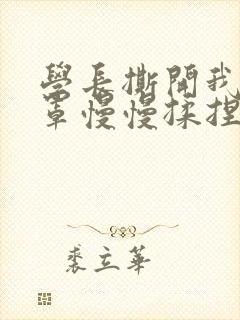 學長撕開我
罩慢慢揉捏
裘立華